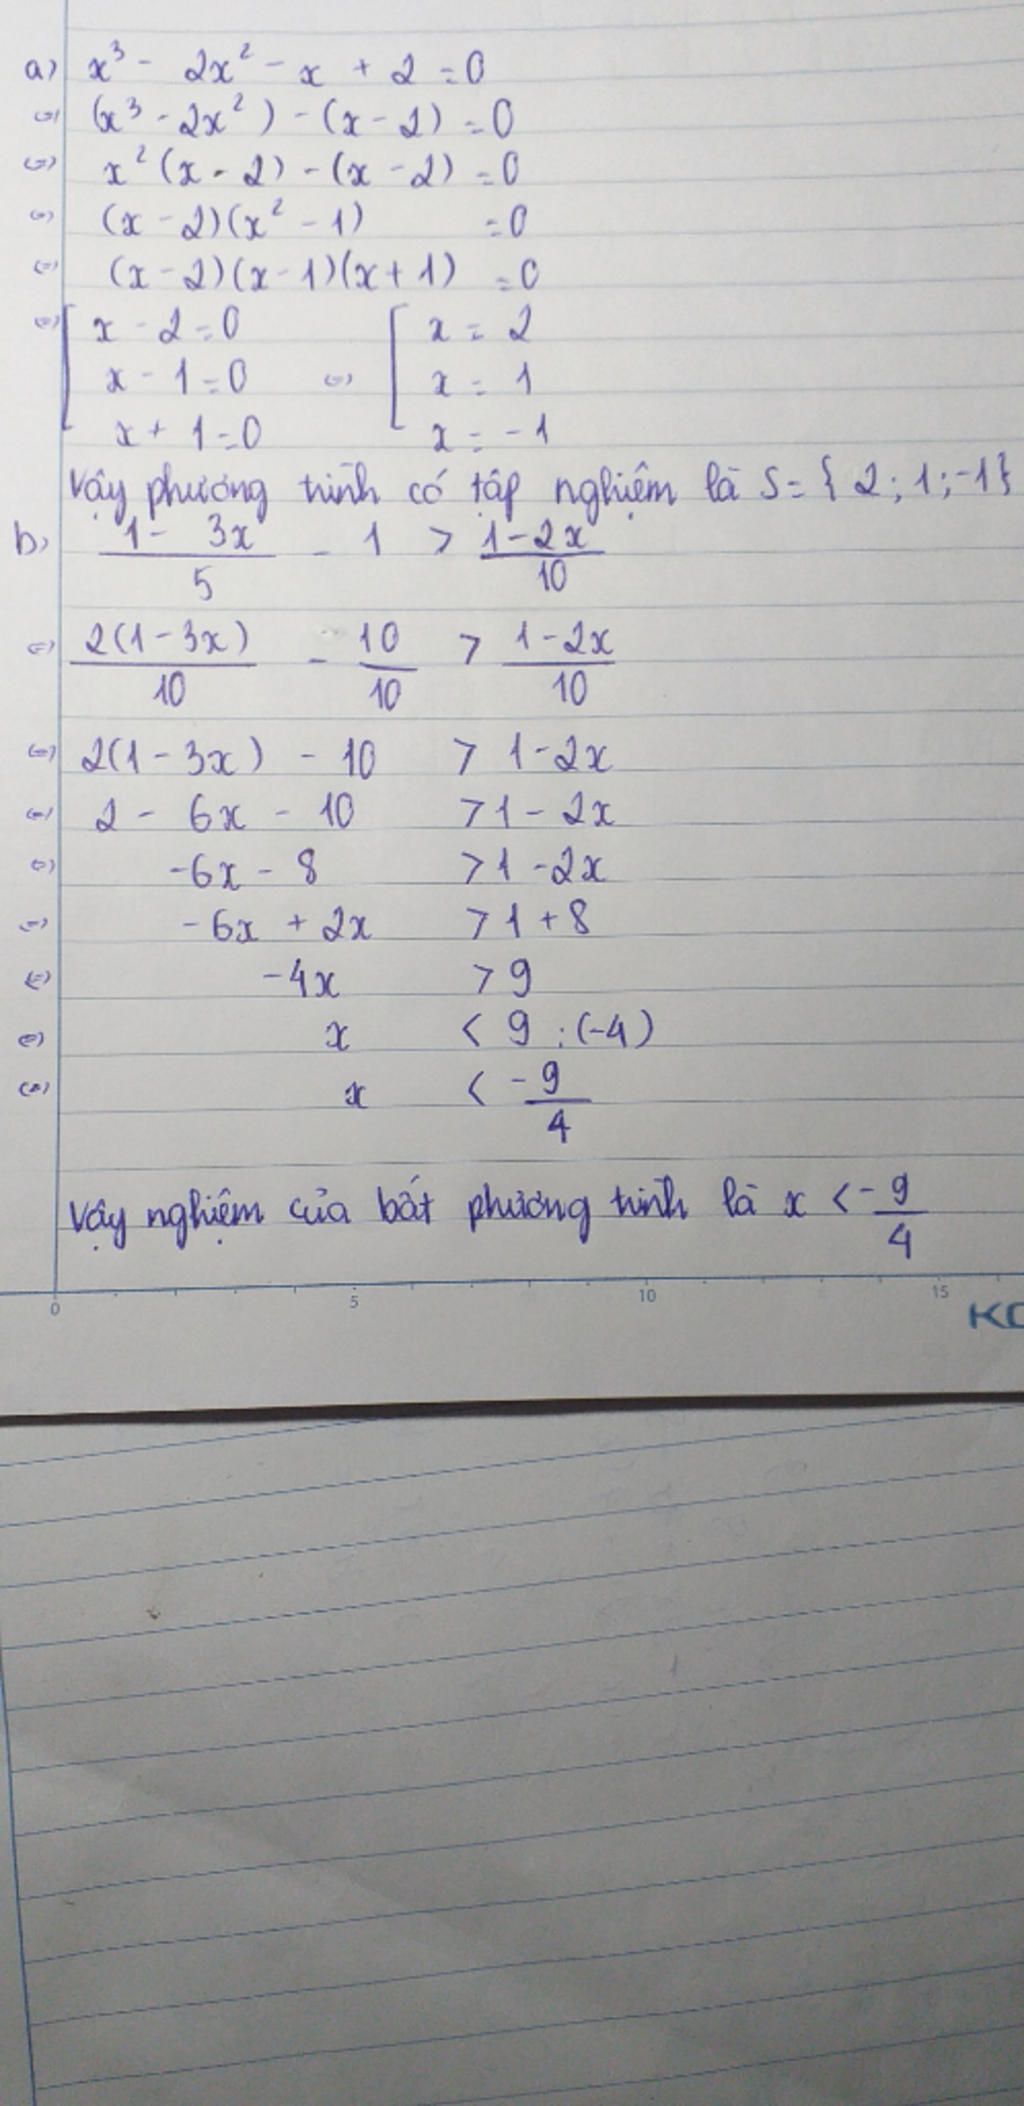 a) x³ - 2x² - x + 2 = 0
<=> (x³ - 2x²) - (x - 2) = 0
<=> x²(x - 2) - (x - 2) = 0
<=> (x - 2)(x² - 1) = 0
<=> (x - 2)(x - 1)(x + 1) = 0
<=> [ x - 2 = 0 [ x = 2
x - 1 = 0 <=> x = 1
x + 1 = 0 x = -1
Vậy phương trình có tập nghiệm là S = { 2; 1; -1}
b) (1 - 3x)/5 - 1 > (1 - 2x)/10
<=> 2(1 - 3x)/10 - 10/10 > (1 - 2x)/10
<=> 2(1 - 3x) - 10 > 1 - 2x
<=> 2 - 6x - 10 > 1 - 2x
<=> -6x - 8 > 1 - 2x
<=> -6x + 2x > 1 + 8
<=> -4x > 9
<=> x < 9 : (-4)
<=> x < -9/4
Vậy nghiệm của bất phương trình là x < -9/4
0 5 10 15